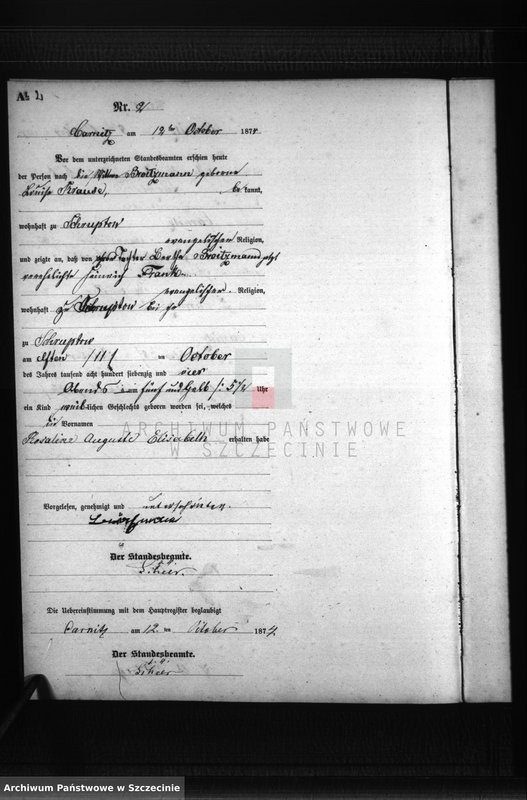 Nr. 2
Carnitz am 12ten October 1874
Vor dem unterzeichneten Standesbeamten erschien heute
der Person nach die Wittwe Broitzmann geborene
Louise Krause, bekannt,
wohnhaft zu Schruptow
evangelischer Religion,
und zeigte an, daß von Tochter Bertha Broitzmann jetzt
verehelichte Heinrich Frank
evangelischer Religion,
wohnhaft zu Schruptow bei
zu Schruptow
am elften /11/ ten October
des Jahres tausend acht hundert siebenzig und vier
Abends um fünf und halb 5½ Uhr
ein Kind weiblichen Geschlechts geboren worden sei, welches
die Vornamen
Rosaline Auguste Elisabeth erhalten habe
Vorgelesen, genehmigt und unterschrieben.
Der Standesbeamte.
Die Uebereinstimmung mit dem Hauptregister beglaubigt
Carnitz am 12 ten October 1874
Der Standesbeamte.
ARCHIWUM PAŃSTWOWE
W SZCZECINIE
Archiwum Państwowe w Szczecinie